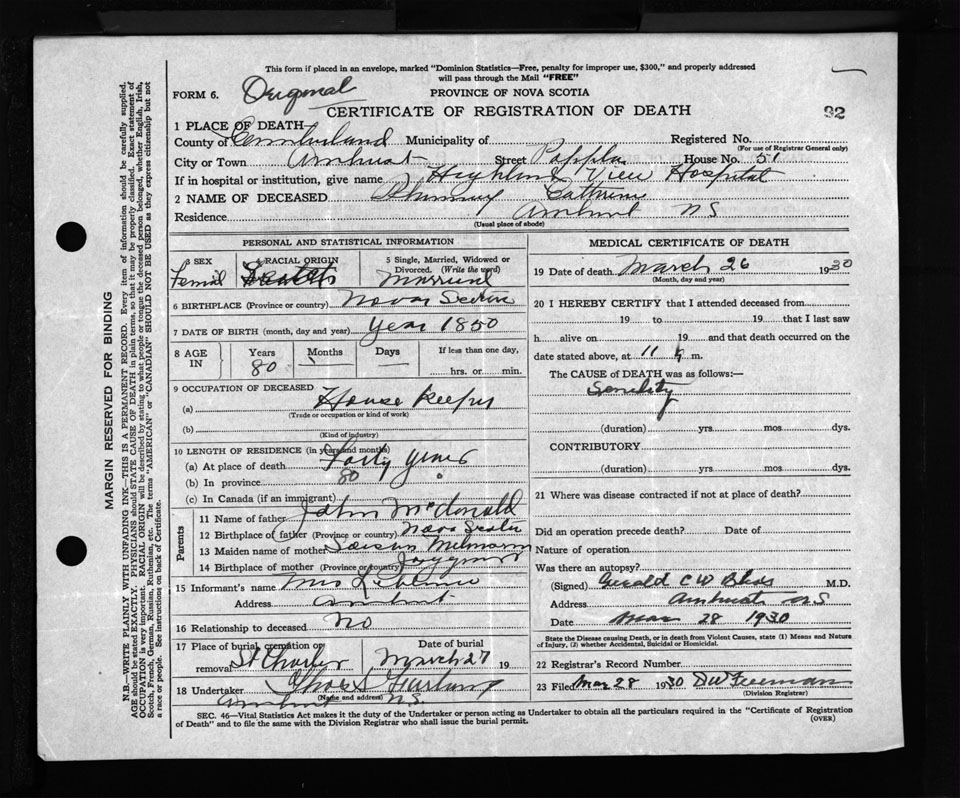 This form if placed in an envelope, marked "Dominion Statistics—Free, penalty for improper use, $300," and properly addressed
will pass through the Mail "FREE"
FORM 6. Original PROVINCE OF NOVA SCOTIA
CERTIFICATE OF REGISTRATION OF DEATH 92
1 PLACE OF DEATH
County of Cumberland Municipality of Registered No.
(For use of Registrar General only)
City or Town Amherst Street House No. 51
If in hospital or institution, give name Highland View Hospital
2 NAME OF DECEASED
Residence Amherst NS
(Usual place of abode)
PERSONAL AND STATISTICAL INFORMATION
3 SEX RACIAL ORIGIN 5 Single, Married, Widowed or
Divorced. (Write the word)
Scotch Married
6 BIRTHPLACE (Province or country) Nova Scotia
7 DATE OF BIRTH (month, day and year) Year 1850
8 AGE IN Years Months Days If less than one day,
80 — — hrs. or min.
9 OCCUPATION OF DECEASED
(a) House Keeper
(Trade or occupation or kind of work)
(b)
(Kind of industry)
10 LENGTH OF RESIDENCE (in years and months)
(a) At place of death Forty years
(b) In province 80
(c) In Canada (if an immigrant)
Parents
11 Name of father John McDonald
12 Birthplace of father (Province or country) Nova Scotia
13 Maiden name of mother
14 Birthplace of mother (Province or country)
15 Informant's name Mrs
Address Amherst
16 Relationship to deceased No
17 Place of burial, cremation or Date of burial
removal St Charles March 27 19
18 Undertaker Furlong
(Name and address)
Amherst N.S.
MEDICAL CERTIFICATE OF DEATH
19 Date of death March 26 1930
(Month, day and year)
20 I HEREBY CERTIFY that I attended deceased from
19 to 19 that I last saw
h alive on 19 and that death occurred on the
date stated above, at 11 m.
The CAUSE of DEATH was as follows:—
Senility
(duration) yrs mos dys.
CONTRIBUTORY
(duration) yrs mos dys.
21 Where was disease contracted if not at place of death?
Did an operation precede death? Date of
Nature of operation
Was there an autopsy?
(Signed) Gerald C W M.D.
Address Amherst NS
Date Mar 28 1930
State the Disease causing Death, or in death from Violent Causes, state (1) Means and Nature
of Injury, (2) whether Accidental, Suicidal or Homicidal.
22 Registrar's Record Number
23 Filed Mar 28 1930 D W Freeman
(Division Registrar)
SEC. 46—Vital Statistics Act makes it the duty of the Undertaker or person acting as Undertaker to obtain all the particulars required in the "Certificate of Registration
of Death" and to file the same with the Division Registrar who shall issue the burial permit. (OVER)
MARGIN RESERVED FOR BINDING
N.B.—WRITE PLAINLY WITH UNFADING INK—THIS IS A PERMANENT RECORD. Every item of information should be carefully supplied.
AGE should be stated EXACTLY. PHYSICIANS should STATE CAUSE OF DEATH in plain terms, so that it may be properly classified. Exact statement of
OCCUPATION is very important. RACIAL ORIGIN will be described by stating to what people or tongue the deceased person belonged, whether English, Irish,
Scotch, French, German, Russian, Ruthenian, etc. The terms "AMERICAN" or "CANADIAN" SHOULD NOT BE USED as they express citizenship but not
a race or people. See instructions on back of Certificate.